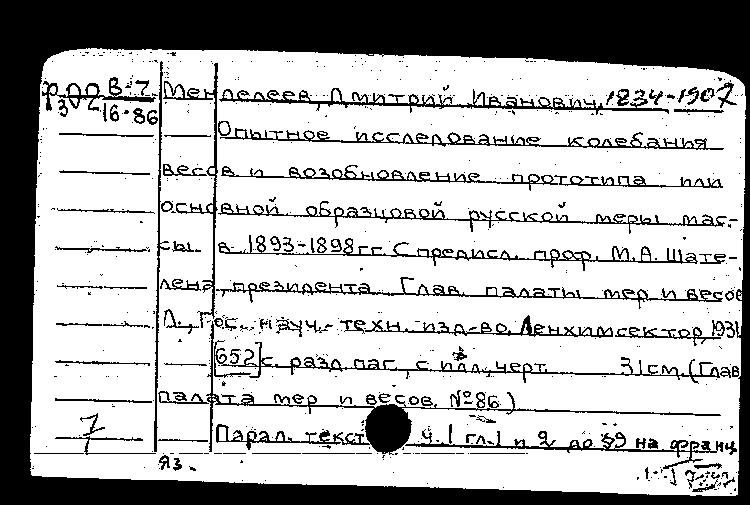 В-7 Менделеев, Дмитрий Иванович, 1834-1907
16-86
Опытное исследование колебания
весов и возобновление прототипа или
основной образцовой русской меры мас-
сы в 1893-1898 гг. С предисл. проф. М.А. Шате-
лена, президента Глав. палаты мер и весов
Л., Гос. науч.-техн. изд-во, Ленхимсектор, 1931
[652] с. разд. паг., с илл., черт. 31 см. (Глав
палата мер и весов. № 86)
Парал. текст ч. 1 гл. 1 и 2 до § 9 на франц
7
яз.